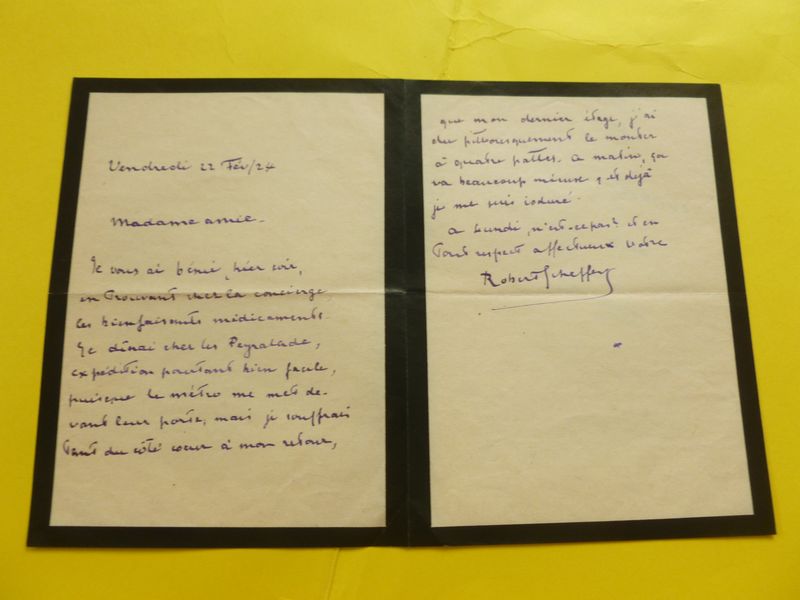 Vendredi 22 Fév/24
Madame amie.
Je vous ai bénie, hier soir,
en trouvant chez la concierge
les bienfaisants médicaments.
Je dînai chez les Peyralade,
expédition pourtant bien facile,
puisque le métro me met de-
vant leur porte, mais je souffrais
tant du côté cœur à mon retour,
que mon dernier étage, j'ai
dû pittoresquement le monter
à quatre pattes. Ce matin, ça
va beaucoup mieux, et déjà
je me suis ioduré.
A Lundi, n'est-ce pas? et en
tout respect affectueux votre
Robert Scheffer